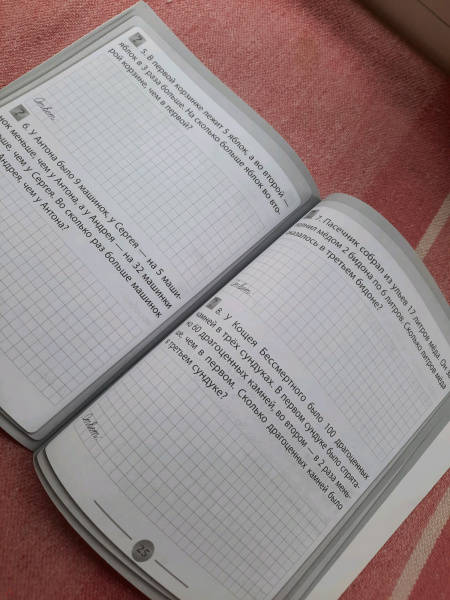 2 5. В первой корзинке лежит 5 яблок, а во второй —
яблок в 3 раза больше. На сколько больше яблок во вто-
рой корзине, чем в первой?
Ответ:
2 6. У Антона было 9 машинок, у Сергея — на 5 маши-
нок меньше, чем у Антона, а у Андрея — на 32 машинки
чем у Сергея. Во сколько раз больше машинок
Андрея, чем у Антона?
7. Пасечник собрал из ульев 17 литров мёда. Он
мёдом 2 бидона по 6 литров. Сколько литров мёда
в третьем бидоне?
Ответ:
8. У Кощея Бессмертного было 100 драгоценных
камней в трёх сундуках. В первом сундуке было спрята-
60 драгоценных камней, во втором — в 2 раза мень-
чем в первом. Сколько драгоценных камней было
третьем сундуке?
Ответ:
25